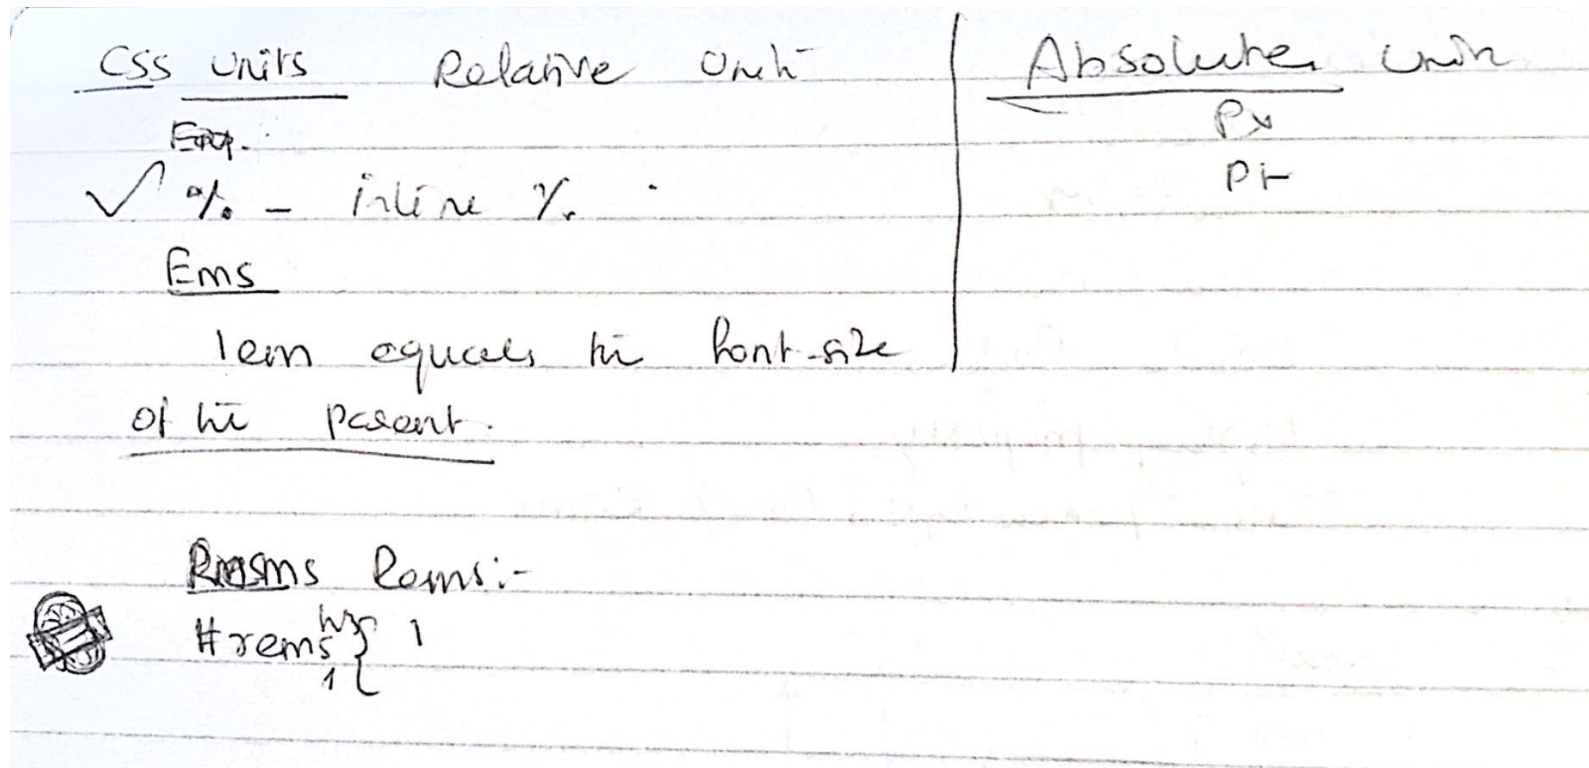 CSS units Relative Unit
%. - inline %.
Ems
1em equals the font-size
of the parent.
Rems:-
#rems } 1
1
Absolute unit
Px
Pt